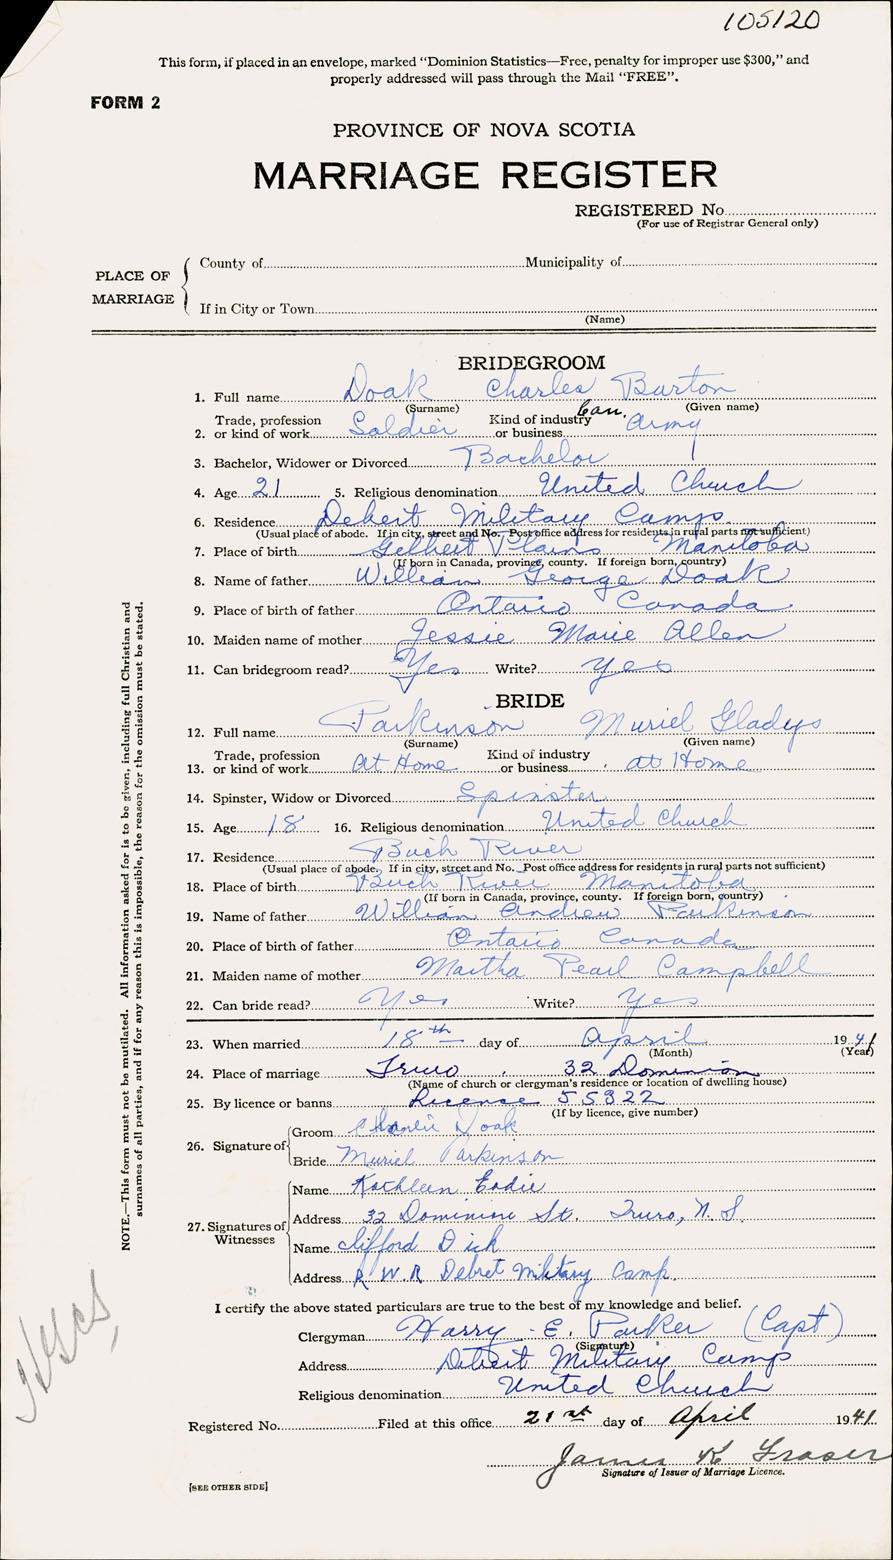 105120
This form, if placed in an envelope, marked "Dominion Statistics—Free, penalty for improper use $300," and
properly addressed will pass through the Mail "FREE".
FORM 2
PROVINCE OF NOVA SCOTIA
MARRIAGE REGISTER
REGISTERED No.
(For use of Registrar General only)
PLACE OF MARRIAGE
County of Municipality of
If in City or Town
(Name)
BRIDEGROOM
1. Full name Doak Charles Burton
(Surname) (Given name)
2. Trade, profession or kind of work Soldier Kind of industry or business Can. Army
3. Bachelor, Widower or Divorced Bachelor
4. Age 21 5. Religious denomination United Church
6. Residence Debert Military Camp.
(Usual place of abode. If in city, street and No. Post office address for residents in rural parts not sufficient)
7. Place of birth Gilbert Plains Manitoba
(If born in Canada, province, county. If foreign born, country)
8. Name of father William George Doak
9. Place of birth of father Ontario Canada
10. Maiden name of mother Jessie Marie Allen
11. Can bridegroom read? Yes Write? Yes
BRIDE
12. Full name Parkinson Muriel Gladys
(Surname) (Given name)
13. Trade, profession or kind of work At Home Kind of industry or business at Home
14. Spinster, Widow or Divorced Spinster
15. Age 18 16. Religious denomination United Church
17. Residence Buch River
(Usual place of abode. If in city, street and No. Post office address for residents in rural parts not sufficient)
18. Place of birth Buch River Manitoba
(If born in Canada, province, county. If foreign born, country)
19. Name of father William Andrew Parkinson
20. Place of birth of father Ontario Canada
21. Maiden name of mother Martha Pearl Campbell
22. Can bride read? Yes Write? Yes
23. When married 18th day of April 1941
(Month) (Year)
24. Place of marriage Truro 32 Dominion
(Name of church or clergyman's residence or location of dwelling house)
25. By licence or banns Licence 55322
(If by licence, give number)
26. Signature of
Groom Charlie Doak
Bride Muriel Parkinson
27. Signatures of Witnesses
Name Kathleen Eadie
Address 32 Dominion St. Truro, N.S.
Name Clifford Dick
Address R W.R Debret Military Camp.
I certify the above stated particulars are true to the best of my knowledge and belief.
Clergyman Harry E. Parker (Capt)
(Signature)
Address Debert Military Camp
Religious denomination United Church
Registered No. Filed at this office 21st day of April 1941
James K Fraser
Signature of Issuer of Marriage Licence.
[SEE OTHER SIDE]
NOTE.—This form must not be mutilated. All information asked for is to be given, including full Christian and
surnames of all parties, and if for any reason this is impossible, the reason for the omission must be stated.